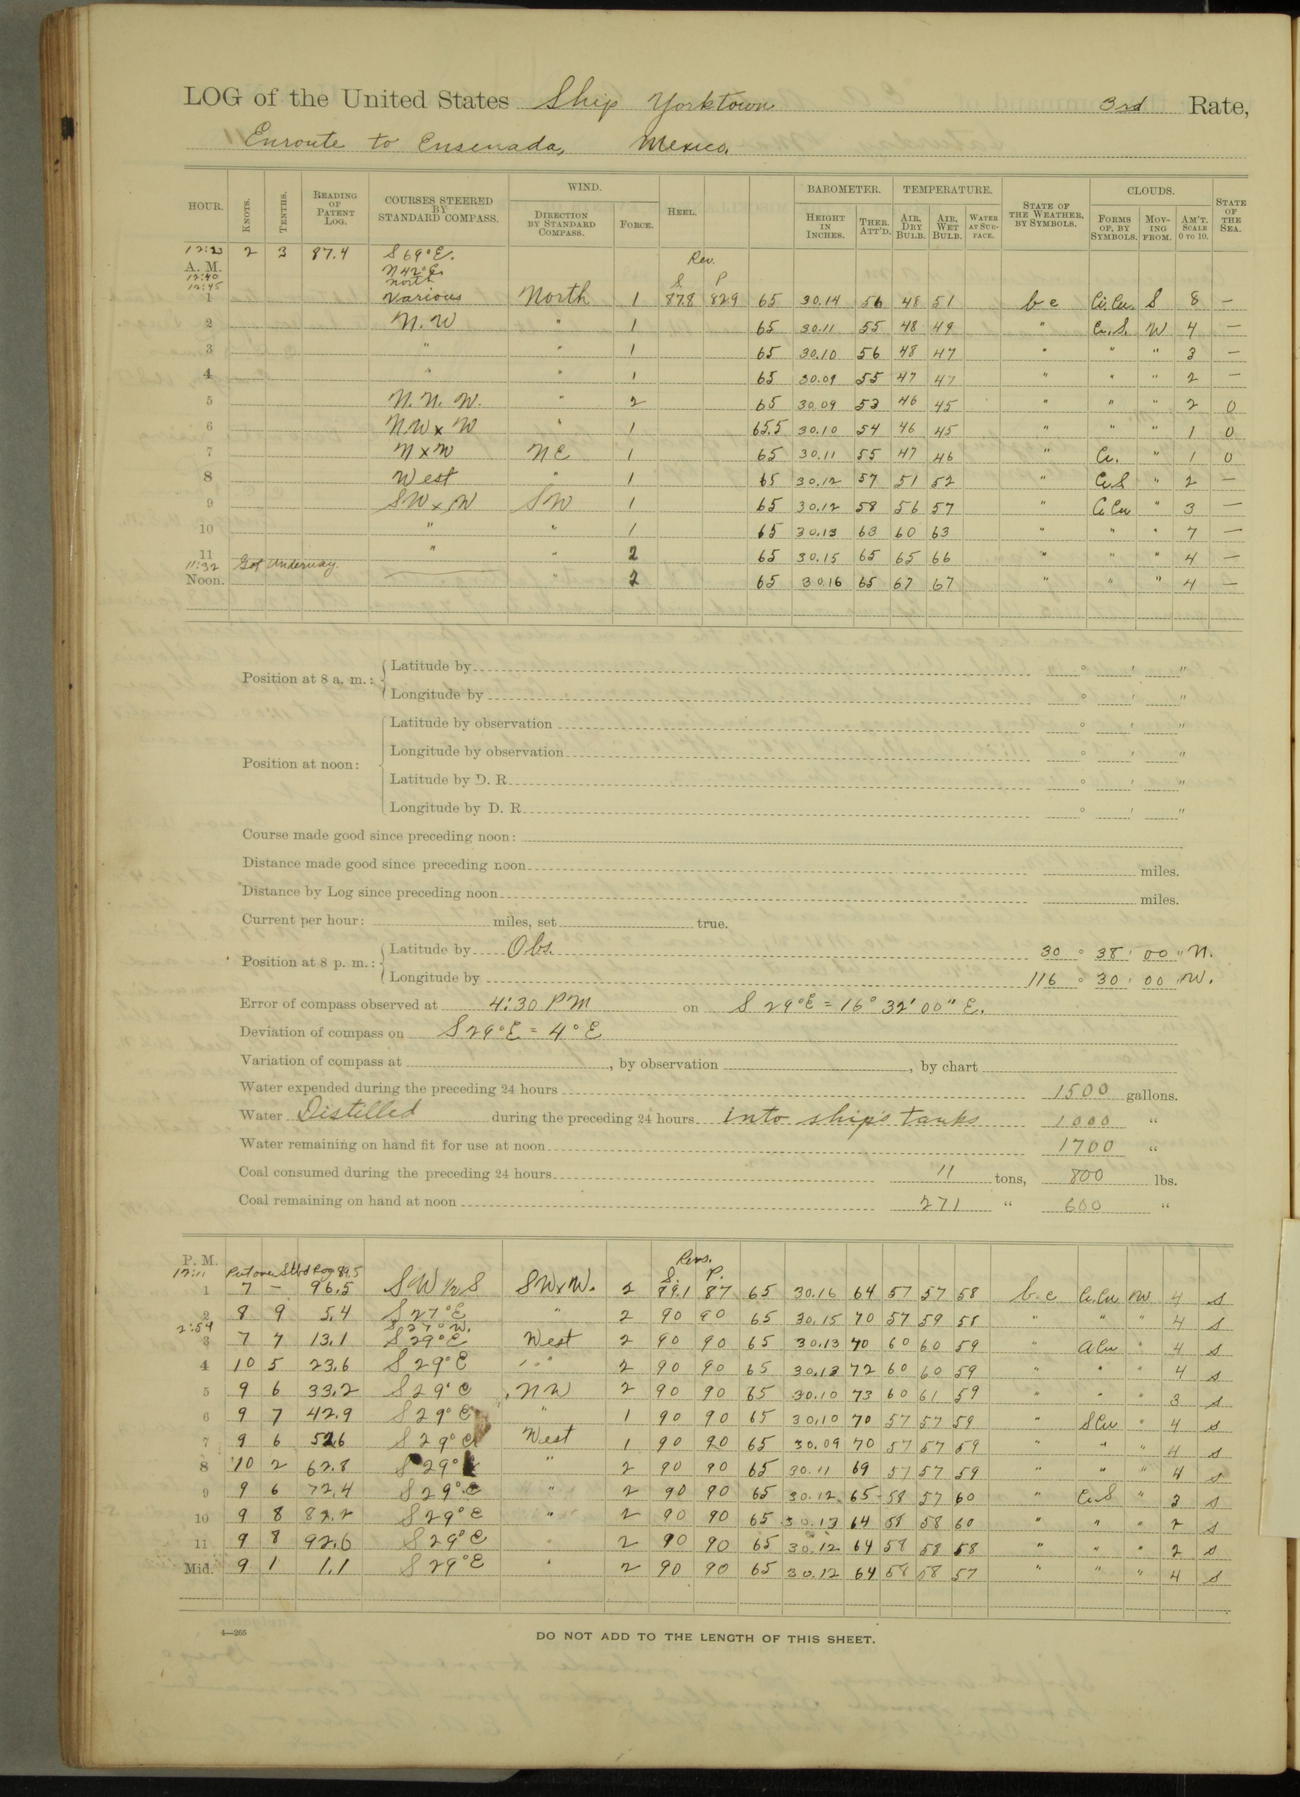 LOG of the United States Ship Yorktown 3rd Rate,
Enroute to Ensenada, Mexico.
HOUR. KNOTS. TENTHS. READING OF PATENT LOG. COURSES STEERED BY STANDARD COMPASS. WIND. DIRECTION BY STANDARD COMPASS. FORCE. HEEL. BAROMETER. HEIGHT IN INCHES. THER. ATT'D. TEMPERATURE. AIR, DRY BULB. AIR, WET BULB. WATER AT SURFACE. STATE OF THE WEATHER, BY SYMBOLS. CLOUDS. FORMS OF, BY SYMBOLS. MOVING FROM. AM'T. SCALE 0 TO 10. STATE OF THE SEA.
2 3 87.4 S 69° E. Rev.
A. M. N 42° E.
12:40 North S P
12:45
1 Various North 1 87.8 82.9 65 30.14 56 48 51 b c Ci.Cu. S 8 —
2 N. W " 1 65 30.11 55 48 49 " Cu.S. W 4 —
3 " " 1 65 30.10 56 48 47 " " " 3 —
4 " " 1 65 30.09 55 47 47 " " " 2 —
5 N. N. W. " 2 65 30.09 53 46 45 " " " 2 0
6 N W x W " 1 65.5 30.10 54 46 45 " " " 1 0
7 N x W N E 1 65 30.11 55 47 46 " Cu. " 1 0
8 West " 1 65 30.12 57 51 52 " C.S " 2 —
9 S W x W S W 1 65 30.12 58 56 57 " C Cu " 3 —
10 " " 1 65 30.13 63 60 63 " " " 7 —
11 " " 2 65 30.15 65 65 66 " " " 4 —
11:32 Got Underway.
Noon. " 2 65 30.16 65 67 67 " " " 4 —
Position at 8 a. m.: Latitude by ° ' "
Longitude by ° ' "
Position at noon: Latitude by observation ° ' "
Longitude by observation ° ' "
Latitude by D. R. ° ' "
Longitude by D. R. ° ' "
Course made good since preceding noon:
Distance made good since preceding noon miles.
Distance by Log since preceding noon miles.
Current per hour: miles, set true.
Position at 8 p. m.: Latitude by Obs. 30 ° 38 ' 00 " N.
Longitude by 116 ° 30 ' 00 " W.
Error of compass observed at 4:30 PM on S 29° E = 16° 32' 00" E.
Deviation of compass on S 29° E = 4° E
Variation of compass at , by observation , by chart
Water expended during the preceding 24 hours 1500 gallons.
Water Distilled during the preceding 24 hours into ship's tanks 1000 "
Water remaining on hand fit for use at noon 1700 "
Coal consumed during the preceding 24 hours 11 tons, 800 lbs.
Coal remaining on hand at noon 271 " 600 "
P. M. Revs.
12:11 Put over Stbd Log 89.5 S. P.
1 7 — 96.5 SW ½ S SW x W. 2 89.1 87 65 30.16 64 57 57 58 b.c Ci.Cu NW 4 S
2 8 9 5.4 S 27° E " 2 90 90 65 30.15 70 57 59 58 " " " 4 S
2:54 S 27° W.
3 7 7 13.1 S 29° E West 2 90 90 65 30.13 70 60 60 59 " A Cu " 4 S
4 10 5 23.6 S 29° E " 2 90 90 65 30.13 72 60 60 59 " " " 4 S
5 9 6 33.2 S 29° E NW 2 90 90 65 30.10 73 60 61 59 " " " 3 S
6 9 7 42.9 S 29° E " 1 90 90 65 30.10 70 57 57 59 " S Cu " 4 S
7 9 6 52.6 S 29° E West 1 90 90 65 30.09 70 57 57 59 " " " 4 S
8 10 2 62.8 S 29° E " 2 90 90 65 30.11 69 57 57 59 " " " 4 S
9 9 6 72.4 S 29° E " 2 90 90 65 30.12 65 58 57 60 " Cu S " 3 S
10 9 8 82.2 S 29° E " 2 90 90 65 30.13 64 58 58 60 " " " 2 S
11 9 8 92.0 S 29° E " 2 90 90 65 30.12 64 58 58 58 " " " 2 S
Mid. 9 1 1.1 S 29° E " 2 90 90 65 30.12 64 58 58 57 " " " 4 S
4—266
DO NOT ADD TO THE LENGTH OF THIS SHEET.